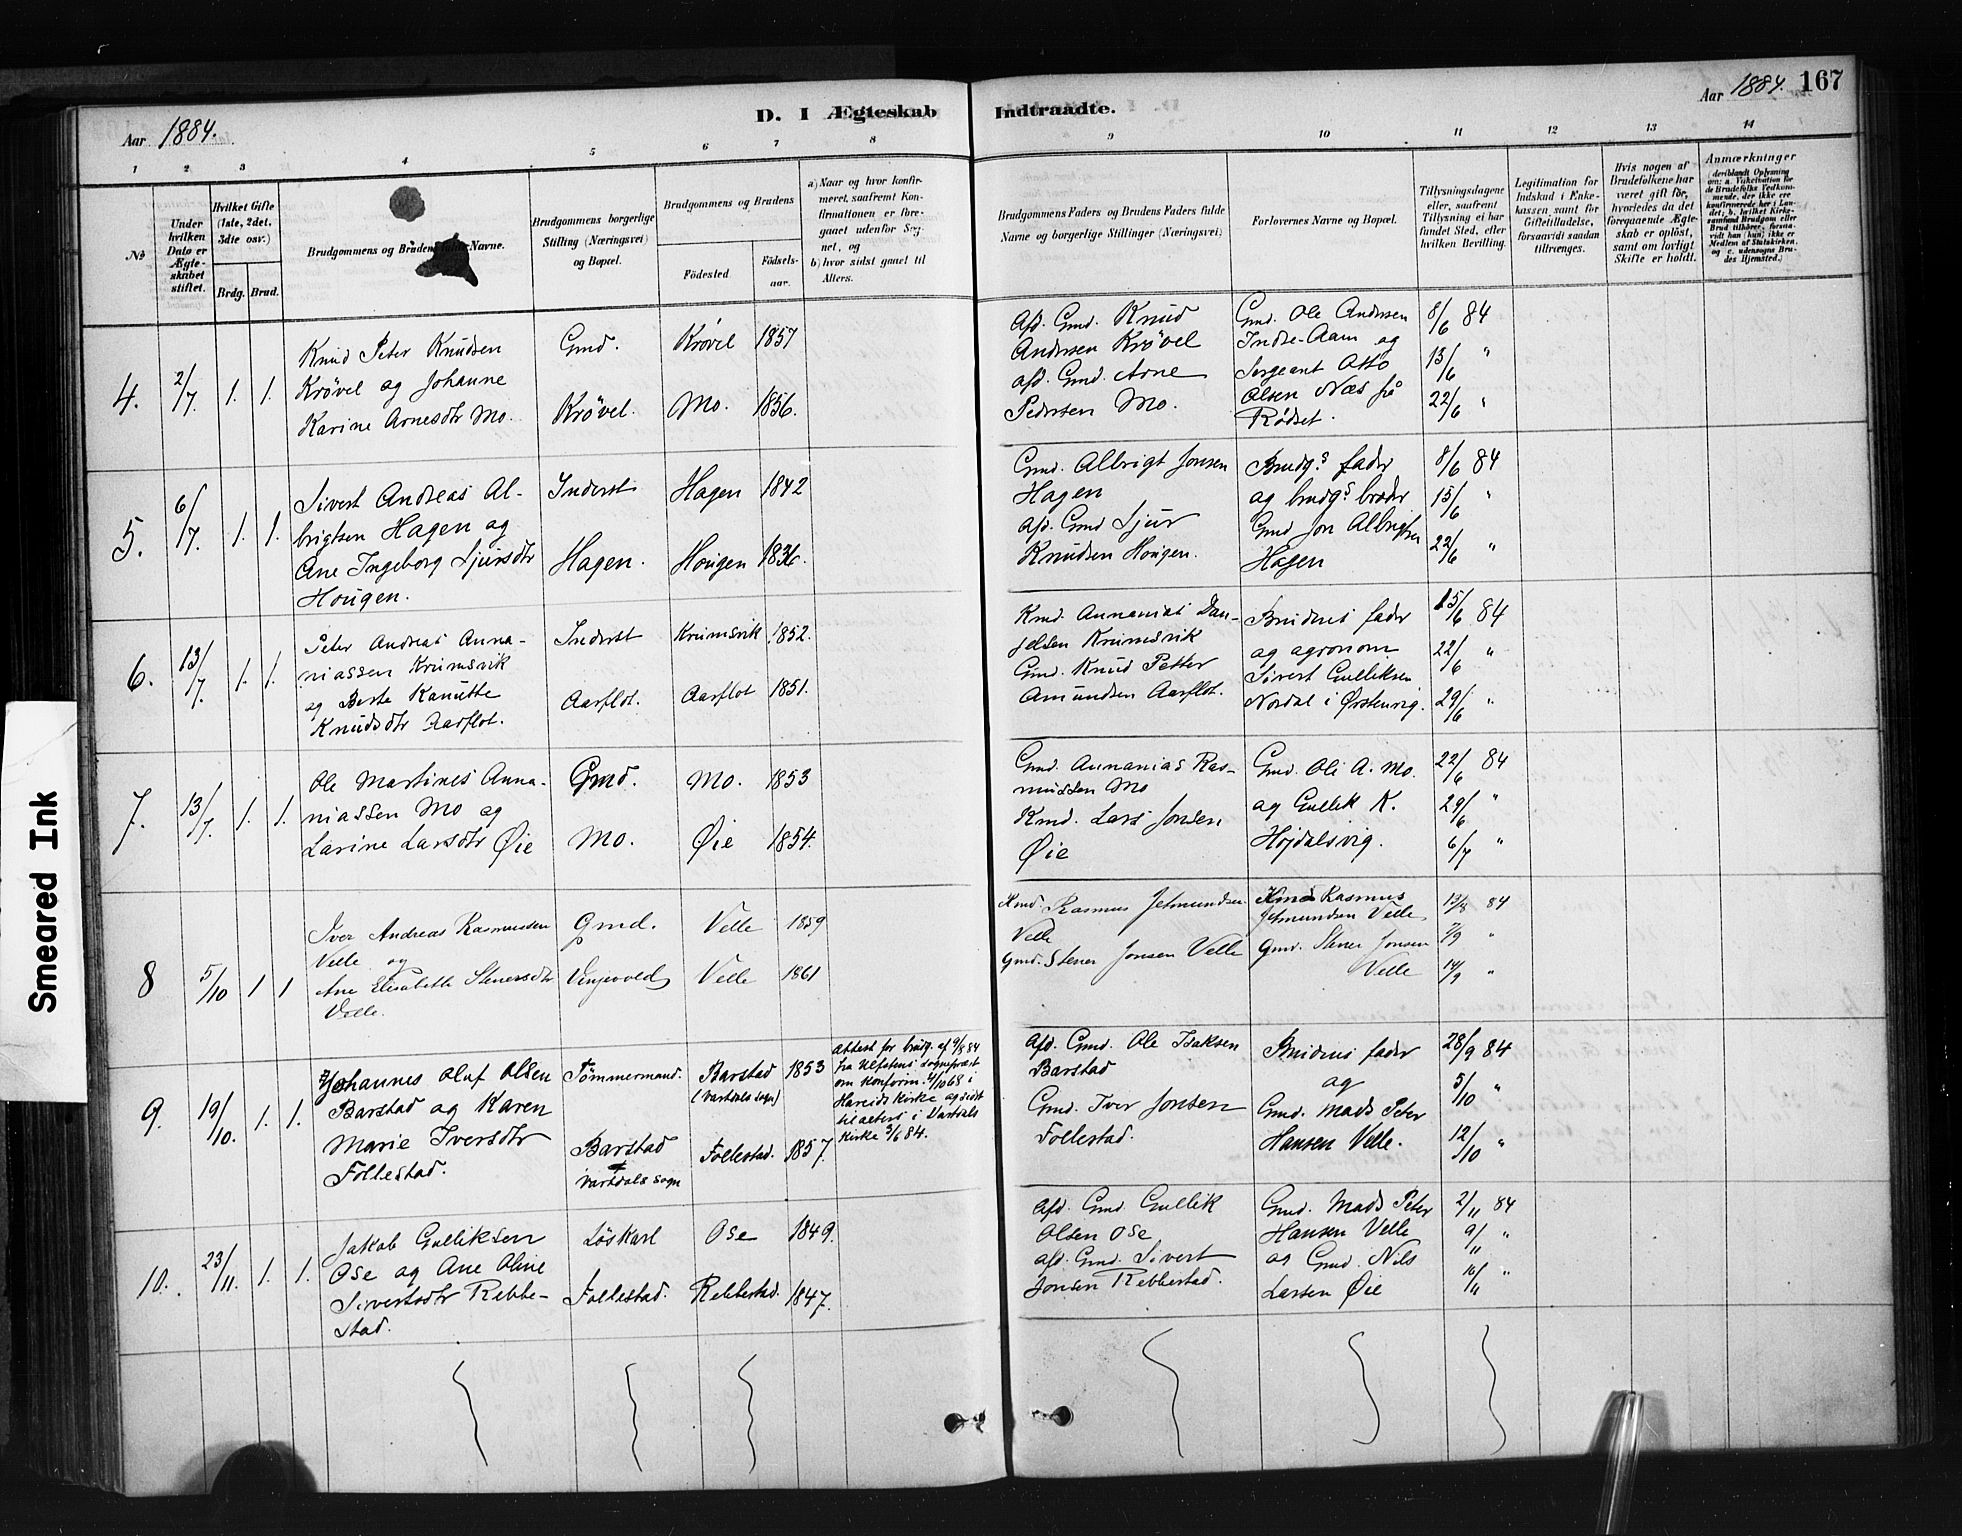 Aar 1884.
D. I Ægteskab
Indtraadte.
Aar 1884. 167
1 2 3 4 5 6 7 8 9 10 11 12 13 14
No
Under hvilken Dato er Ægteskabet stiftet.
Hvilket Gifte (1ste, 2det, 3die osv.)
Brdg. Brud.
Brudgommens og Brudens Navne.
Brudgommens borgerlige Stilling (Næringsvei) og Bopæl.
Brudgommens og Brudens
Fødested.
Fødsels-aar.
a) Naar og hvor konfirmeret, saafremt Konfirmationen er foregaaet udenfor Sognet, og
b) hvor sidst gaaet til Alters.
Brudgommens Faders og Brudens Faders fulde Navne og borgerlige Stillinger (Næringsvei)
Forlovernes Navne og Bopæl.
Tillysningsdagene eller, saafremt Tillysning ei har fundet Sted, efter hvilken Bevilling.
Legitimation for Indskud i Enkekassen samt for Giftetilladelse, forsaavidt saadan tiltrænges.
Hvis nogen af Brudefolkene har været gift før, hvorledes da det foregaaende Ægteskab er opløst, samt om lovligt Skifte er holdt.
Anmærkninger
4. 2/7. 1. 1.
Knud Peter Knudsen
Krövel og Johanne
Karine Arnesdtr Mo.
Gmd.
Krövel.
Krövel 1857
Mo. 1856.
Afd. Gmd. Knud
Andersen Krövel
afd. Gmd. Arne
Pedersen Mo.
Gmd. Ole Andersen
Indre-Aam og
Sergeant Otto
Olsen Næs på
Rødset.
8/6 84
15/6 "
22/6 "
5. 6/7. 1. 1.
Sivert Andreas Al-
brigtsen Hagen og
Ane Ingeborg Sjursdtr
Hougen.
Inderst
Hagen.
Hagen 1842
Hougen 1836.
Gmd. Albrigt Jonsen
Hagen
Afd. Gmd Sjur
Knudsen Hougen.
Brudg.s fader
og brudg.s broder
Gmd Jon Albrigtsen
Hagen
8/6 84
15/6 "
22/6 "
6. 13/7. 1. 1.
Peter Andreas Anna-
niassen Krumsvik
og Berte Kanutte
Knudsdtr Aarflot.
Inderst
Aarflot.
Krumsvik 1852.
Aarflot 1851.
Kmd. Annanias Dan-
jelsen Krumsvik
Gmd. Knud Petter
Amundsen Aarflot.
Brudens fader
og agronom
Sivert Gulliksen
Nordal i Ørstenvig.
15/6 84
22/6 "
29/6 "
7. 13/7. 1. 1.
Ole Martines Anna-
niassen Mo og
Larine Larsdtr Øie
Gmd.
Mo.
Mo. 1853
Øie 1854.
Gmd. Annanias Ras-
mussen Mo
Kmd. Lars Jonsen
Øie
Gmd. Ole A. Mo.
og Gullik K.
Højdalsvig.
22/6 84
29/6 "
6/7 "
8 5/10 1 1
Iver Andreas Rasmussen
Velle og
Ane Elisabeth Stenersdtr
Velle.
Gmd.
Velle 1859
Velle 1861
Kmd. Rasmus Jetmundsen
Velle
Gmd. Stener Jonsen Velle
Kmd Rasmus
Jetmundsen Velle
Gmd. Stener Jonsen
Velle
13/8 84
7/9 "
14/9 "
9. 19/10. 1. 1.
Johannes Oluf Olsen
Barstad og Karen
Marie Iversdtr
Follestad.
Tömmermand.
Barstad
Vartdals sogn
Barstad 1853
(Vartdals sogn)
Follestad. 1857.
Attest for brudg. af 9/8 84
fra Ulfstens sognepræst
om konfirm. 4/10 68 i
Hareids kirke og sidst
til alters i Vartdals
kirke 3/6 84.
Afd. Gmd. Ole Isaksen
Barstad
Gmd. Iver Jonsen
Follestad.
Brudens fader
og
Gmd. Mads Peter
Hansen Velle.
28/9 84
5/10 "
12/10 "
10. 23/11. 1. 1.
Jakob Gulliksen
Ose og Ane Oline
Sivertsdtr Rebbe-
stad.
Löskarl
Follestad.
Ose 1849.
Rebbestad. 1847.
Afd. Gmd Gullik
Olsen Ose
afd. Gmd. Sivert
Jonsen Rebbestad.
Gmd. Mads Peter
Hansen Velle
og Gmd. Nils
Larsen Øie
2/11 84
9/11 "
16/11 "
Smeared Ink